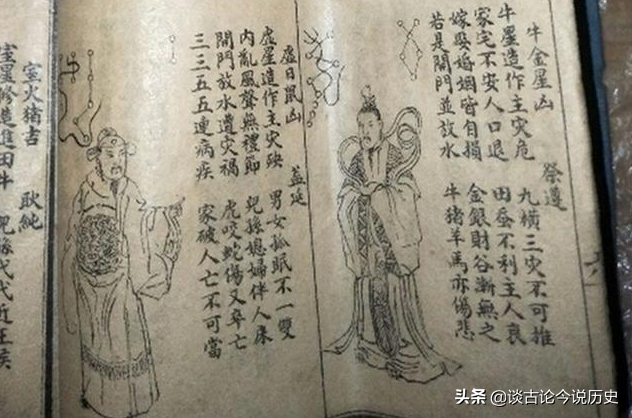 牛金星凶
祭遵
牛星造作主灾危
九横三灾不可推
家宅不安人口退
田蚕不利主人衰
嫁娶婚姻皆自損
金銀財谷漸無之
若是開門並放水
牛猪羊馬亦傷悲
虚日鼠凶
盖延
虚星造作主灾殃
男女孤眠不一雙
内亂風聲無禮節
兒孫媳婦伴人床
開門放水遭灾禍
虎咬蛇傷又卒亡
三三五五連病疾
家破人亡不可當
室火猪吉
耿純
室星修造進田牛
兒孫代代近王侯
头条 @谈古论今说历史